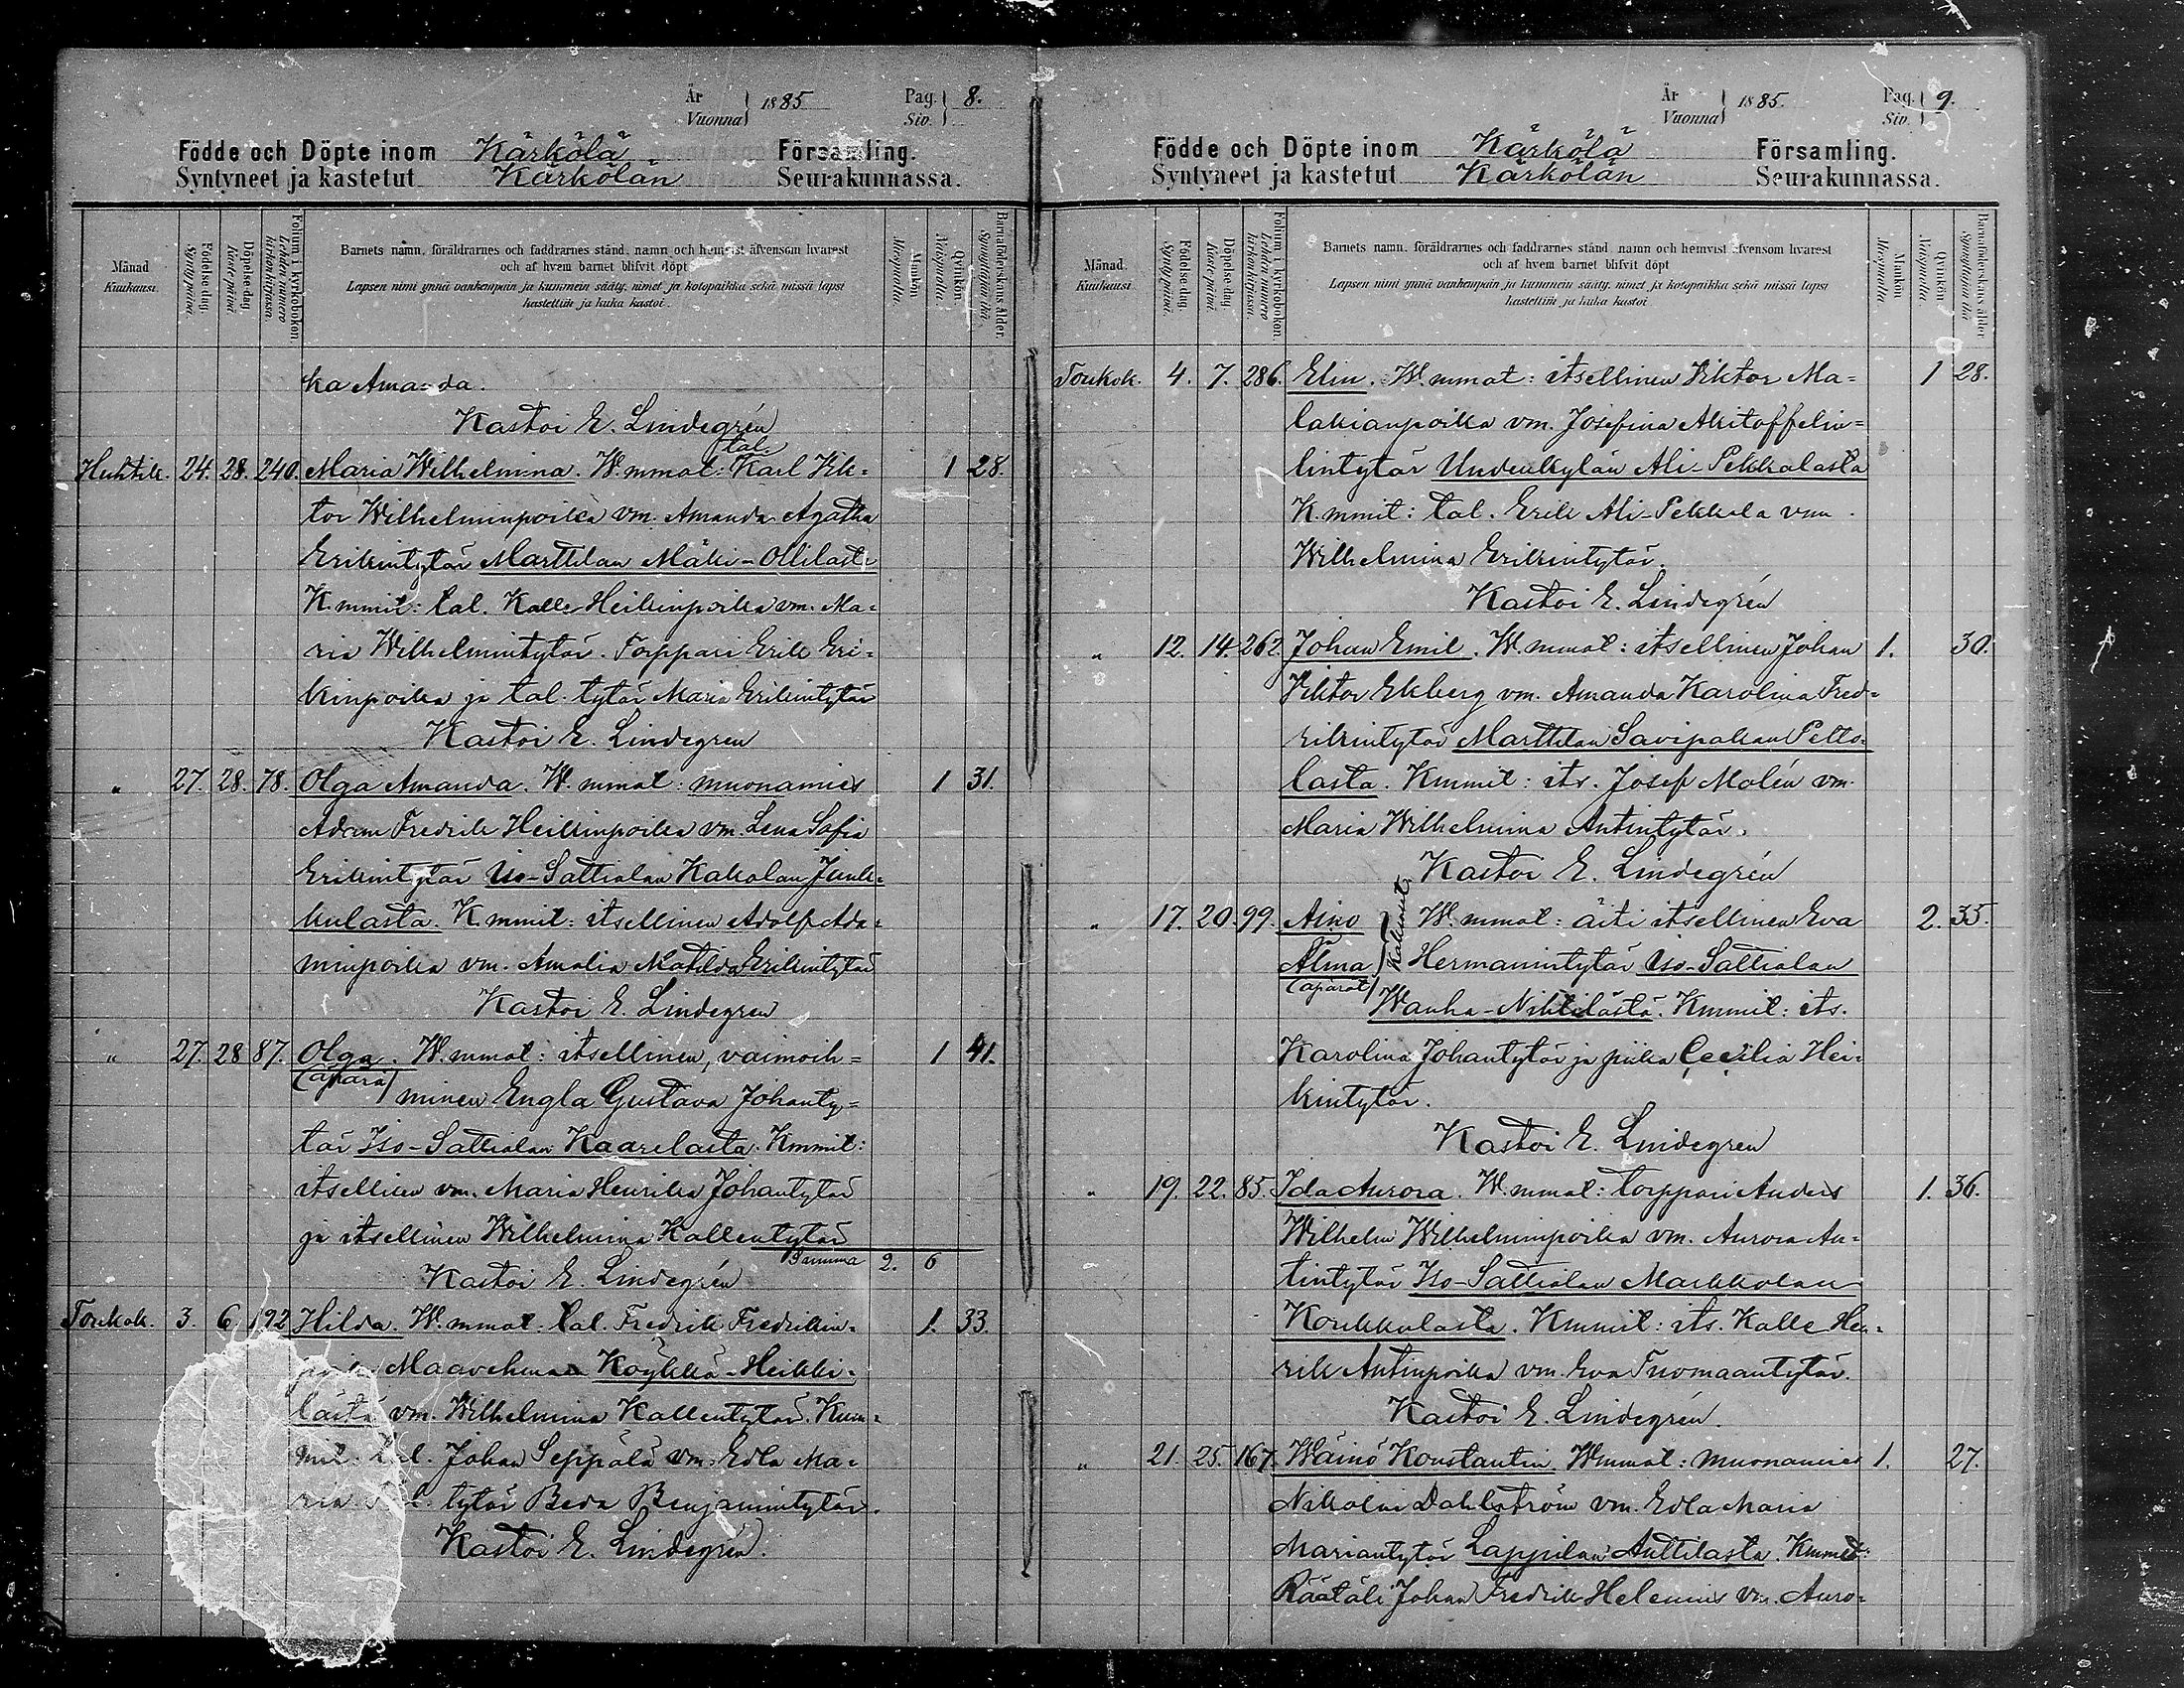 År
Vuonna
1885
Pag.
Siv.
8.
Födde och Döpte inom Kärkölä Församling.
Syntyneet ja kastetut Kärkölän Seurakunnassa.
Månad. Kuukausi.
Födelse dag. Syntypäivä.
Döpelse dag. Kaste päivä.
Folium i kyrkoboken. Lehden numero kirkonkirjassa.
Barnets namn, föräldrarnes och faddrarnes stånd, namn och hemvist äfvensom hvarest
och af hvem barnet blifvit döpt
Lapsen nimi ynnä vanhempain ja kummein sääty, nimet ja kotopaikka sekä missä lapsi
kastettiin ja kuka kastoi.
Mankön Miespuolia.
Qvinkön Naispuolia.
Barnaföderskans ålder. Synnyttäjän ikä
ka Amanda.
Kastoi E. Lindegrén
tal.
Huhtik. 24. 28. 240. Maria Wilhelmina. W.mmat: Karl Vik= 1 28.
tor Wilhelminpoika vm. Amanda Agatha
Erikintytär Marttilan Mäki-Ollilasta
K.mmit: tal. Kalle Heikinpoika vm. Ma=
ria Wilhelmintytär. Torppari Erik Eri=
kinpoika ja tal. tytär Maria Erikintytär
Kastoi E. Lindegren
" 27. 28. 78. Olga Amanda. W.mmat: muonamies 1 31.
Adam Fredrik Heikinpoika vm. Lena Sofia
Erikintytär Iso-Sattialan Kakolan Junk=
kulasta. K.mmit: itsellinen Adolf Ada=
minpoika vm. Amalia Matilda Erikintytär
Kastoi E. Lindegren
" 27. 28 87. Olga. W.mmat: itsellinen, vaimoih= 1 41.
(äpärä) minen Engla Gustava Johanty=
tär Iso-Sattialan Kaarelasta. Kmmit:
itsellinen vm. Maria Henrika Johantytär
ja itsellinen Wilhelmina Kallentytär
Summa 2. 6
Kastoi E. Lindegrén
Toukok. 3. 6 192 Hilda. W.mmat: tal. Fredrik Fredrikin= 1. 33.
Köykkä-Heikki=
lästä vm. Wilhelmina Kallentytär. Kum=
mit: tal. Johan Seppälä vm. Edla Ma=
ria tytär Beda Benjamintytär.
Kastoi E. Lindegrén.
År
Vuonna
1885.
Pag.
Siv.
9.
Födde och Döpte inom Kärkölä Församling.
Syntyneet ja kastetut Kärkölän Seurakunnassa.
Månad. Kuukausi
Födelse dag. Syntypäivä.
Döpelse dag. Kaste päivä.
Folium i kyrkoboken. Lehden numero kirkonkirjassa.
Barnets namn, föräldrarnes och faddrarnes stånd namn och hemvist äfvensom hvarest
och af hvem barnet blifvit döpt
Lapsen nimi ynnä vanhempain ja kummein sääty, nimet ja kotopaikka sekä missä lapsi
kastettiin ja kuka kastoi
Mankön Miespuolia.
Qvinkön Naispuolia.
Barnaföderskans ålder Synnyttäjän ikä
Toukok. 4. 7. 286. Elin. W.mmat: itsellinen Viktor Ma= 1 28.
lakianpoika vm. Josefina Akitoffelin=
lintytär Uudenkylän Ali-Pekkalasta
K.mmit: tal. Erik Ali-Pekkala vm
Wilhelmina Erikintytär.
Kastoi E. Lindegrén
" 12. 14. 262. Johan Emil. W.mmat: itsellinen Johan 1. 30.
Viktor Ekberg vm. Amanda Karolina Fred=
rikintytär Marttilan Savipakan Pelto=
lasta. Kmmit: its. Josef Molén vm.
Maria Wilhelmina Antintytär.
Kastoi E. Lindegrén
" 17. 20. 99. Aino Kaksoset W.mmat: äiti itsellinen Eva 2. 35.
Alma Hermanintytär Iso-Sattialan
(äpärät) Wanha-Nihtilästä. Kmmit: its.
Karolina Johantytär ja piika Cecilia Hei=
kintytär.
Kastoi E. Lindegren
" 19. 22. 85. Ida Aurora. W.mmat: torppari Anders 1. 36.
Wilhelm Wilhelminpoika vm. Aurora An=
tintytär Iso-Sattialan Markkolan
Koukkulasta. Kmmit: its. Kalle Hen=
rik Antinpoika vm. Eva Tuomaantytär.
Kastoi E. Lindegrén.
" 21. 25. 167. Wäinö Konstantin. Wmmat: muonamies 1. 27.
Nikolai Dahlström vm. Edla Maria
Mariantytär Lappilan Anttilasta. Kmmit:
Räätäli Johan Fredrik Helenius vm. Auro=